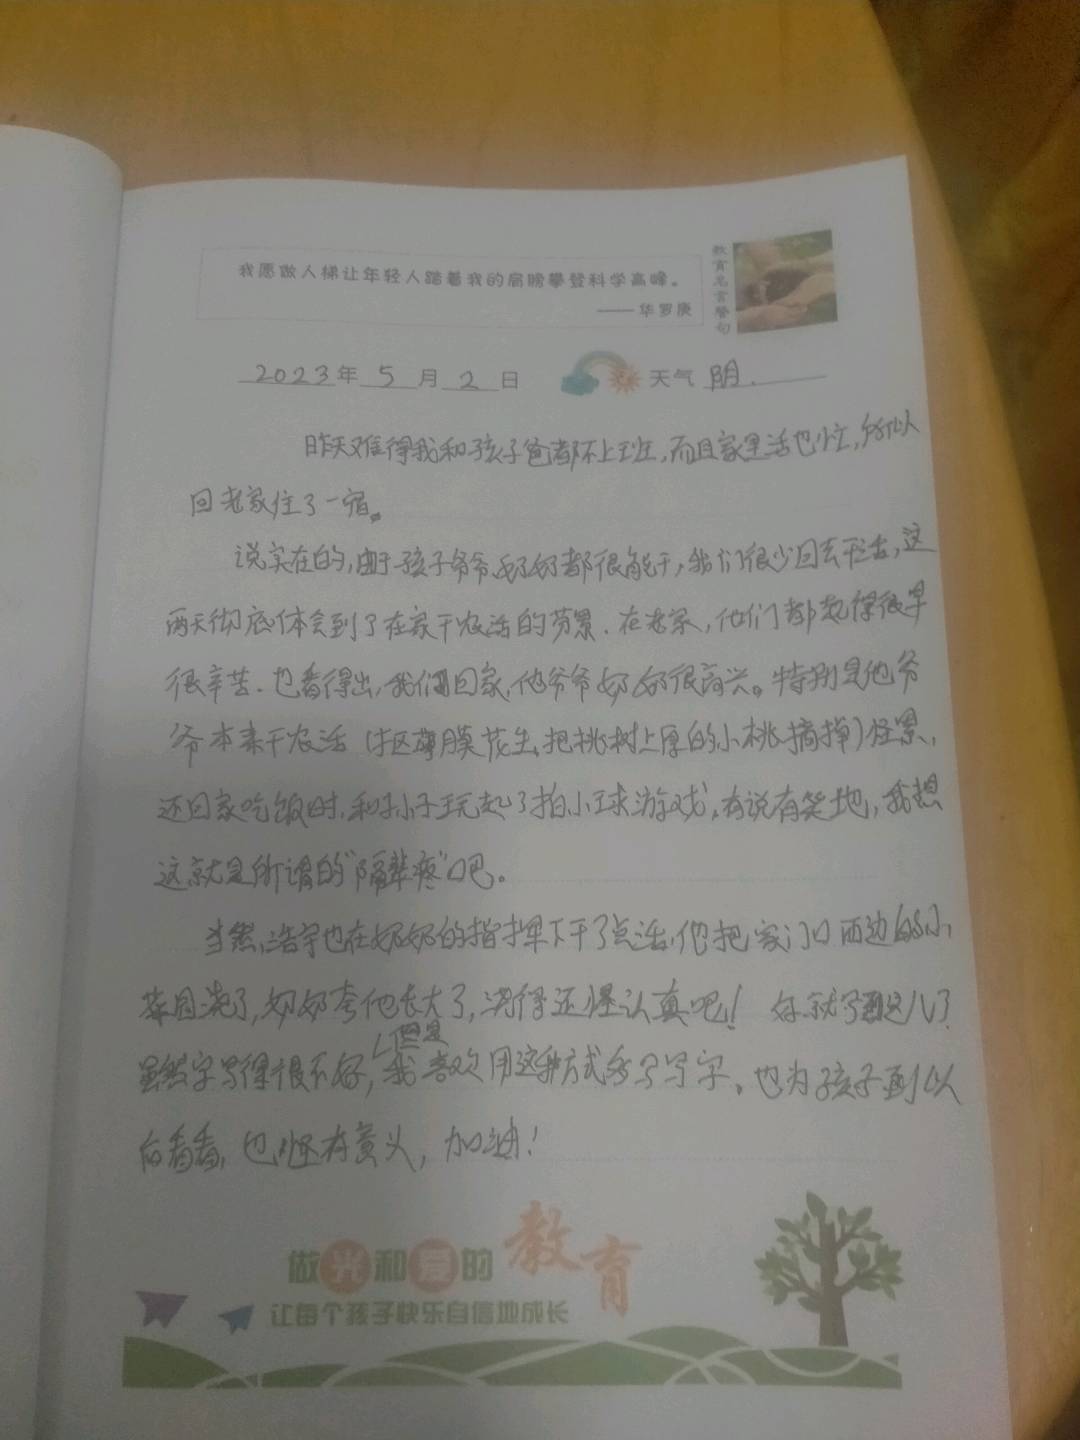 我愿做人梯让年轻人踏着我的肩膀攀登科学高峰。
——华罗庚
教育名言警句
2023年 5 月 2 日 天气 阴.
昨天难得我和孩子爸都不上班,而且家里活也忙,所以
回老家住了一宿。
说实在的,由于孩子爷爷、奶奶都很能干,我们很少回去干活,这
两天彻底体会到了在家干农活的劳累.在老家,他们都起得很早
很辛苦.也看得出,我们回家,他爷爷奶奶很高兴。特别是他爷
爷本来干农活(抠薄膜花生,把桃树上厚的小桃摘掉)怪累,
还回家吃饭时,和孙子玩起了拍小球游戏,有说有笑地,我想
这就是所谓的“隔辈疼”吧。
当然,浩宇也在奶奶的指挥下干了点活,他把家门口西边的小
菜园浇了,奶奶夸他长大了,浇得还怪认真吧! 好就写到这儿了
虽然字写得很不好,但是我喜欢用这种方式多写写字。也为孩子到以
后看看,也怪有意义,加油!
做光和爱的教育
让每个孩子快乐自信地成长